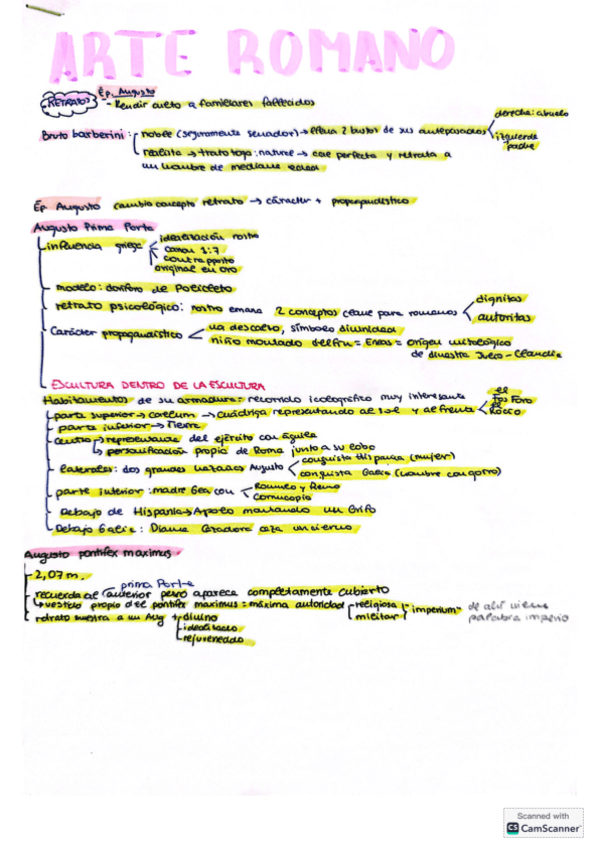 ARTE ROMANO
Ép. Augusto
RETRATOS - Rendir culto a familiares fallecidos
derecha: abuelo
Bruto barberini: noble (seguramente senador) → lleva 2 bustos de sus antepasados
izquierda padre
realista → trato toga: natural → cae perfecta y retrata a
un hombre de mediana edad
Ép Augusto cambio concepto retrato → carácter + propagandístico
Augusto Prima Porta
influencia griega
idealización rostro
canon 1:7
contrapposto
original en oro
modelo: doríforo de Policleto
retrato psicológico: rostro emana 2 conceptos clave para romanos
dignitas
autoritas
Carácter propagandístico
va descalzo, símbolo divinidad
niño montado delfín = Eneas = origen mitológico
de dinastía Julio-Claudia
ESCULTURA DENTRO DE LA ESCULTURA
de su armadura: recorrido icolográfico muy interesante
parte superior → caelum → cuádriga representando al sol y al frente
el Fósforo
el Rocío
parte inferior → Tierra
centro → representante del ejército con águila
personificación propia de Roma junto a su lobo
laterales: dos grandes hazañas Augusto
conquista Hispania (mujer)
conquista Galia (hombre con gorro)
parte inferior: madre Gea con
Rómulo y Remo
Cornucopia
Debajo de Hispania → Apolo montando un Grifo
Debajo Galia: Diana Cazadora caza un ciervo
Augusto pontifex maximus
2,07 m.
prima Porta
recuerda al anterior pero aparece completamente cubierto
vestido propio del pontifex maximus: máxima autoridad
religiosa
militar
"imperium"
de ahí viene
palabra imperio
retrato muestra a un Aug +
divino
idealizado
rejuvenecido
Scanned with
CS CamScanner